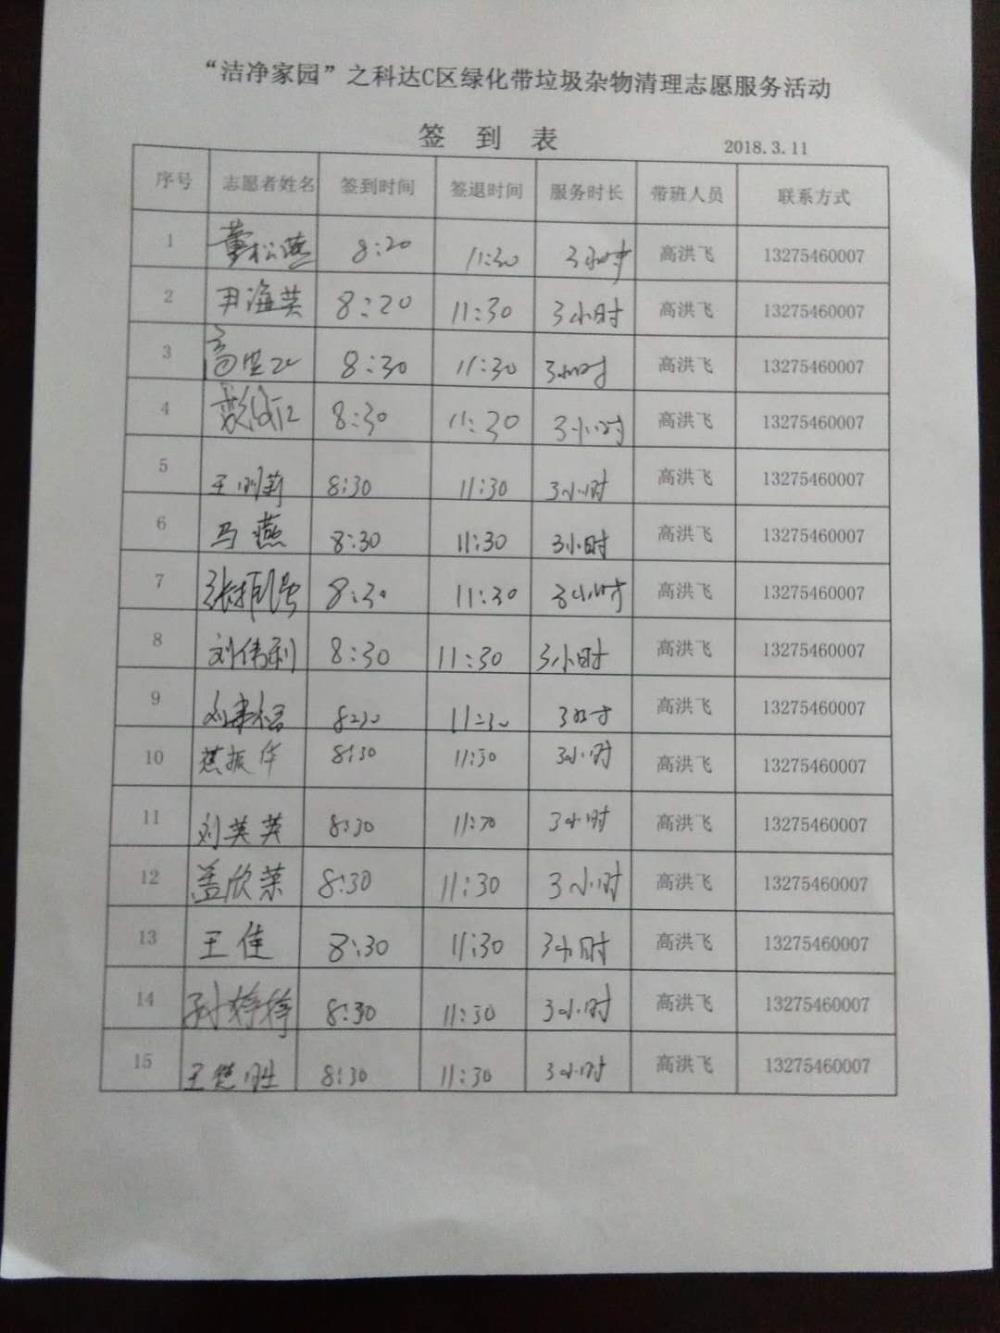 “洁净家园”之科达C区绿化带垃圾杂物清理志愿服务活动
签 到 表
2018.3.11
序号 志愿者姓名 签到时间 签退时间 服务时长 带班人员 联系方式
1 董松燕 8:20 11:30 3小时 高洪飞 13275460007
2 尹海英 8:20 11:30 3小时 高洪飞 13275460007
3 8:30 11:30 3小时 高洪飞 13275460007
4 8:30 11:30 3小时 高洪飞 13275460007
5 王 8:30 11:30 3小时 高洪飞 13275460007
6 马燕 8:30 11:30 3小时 高洪飞 13275460007
7 8:30 11:30 3小时 高洪飞 13275460007
8 刘伟利 8:30 11:30 3小时 高洪飞 13275460007
9 8:30 11:30 3小时 高洪飞 13275460007
10 8:30 11:30 3小时 高洪飞 13275460007
11 刘英英 8:30 11:30 3小时 高洪飞 13275460007
12 盖欣荣 8:30 11:30 3小时 高洪飞 13275460007
13 王佳 8:30 11:30 3小时 高洪飞 13275460007
14 孙婷婷 8:30 11:30 3小时 高洪飞 13275460007
15 8:30 11:30 3小时 高洪飞 13275460007